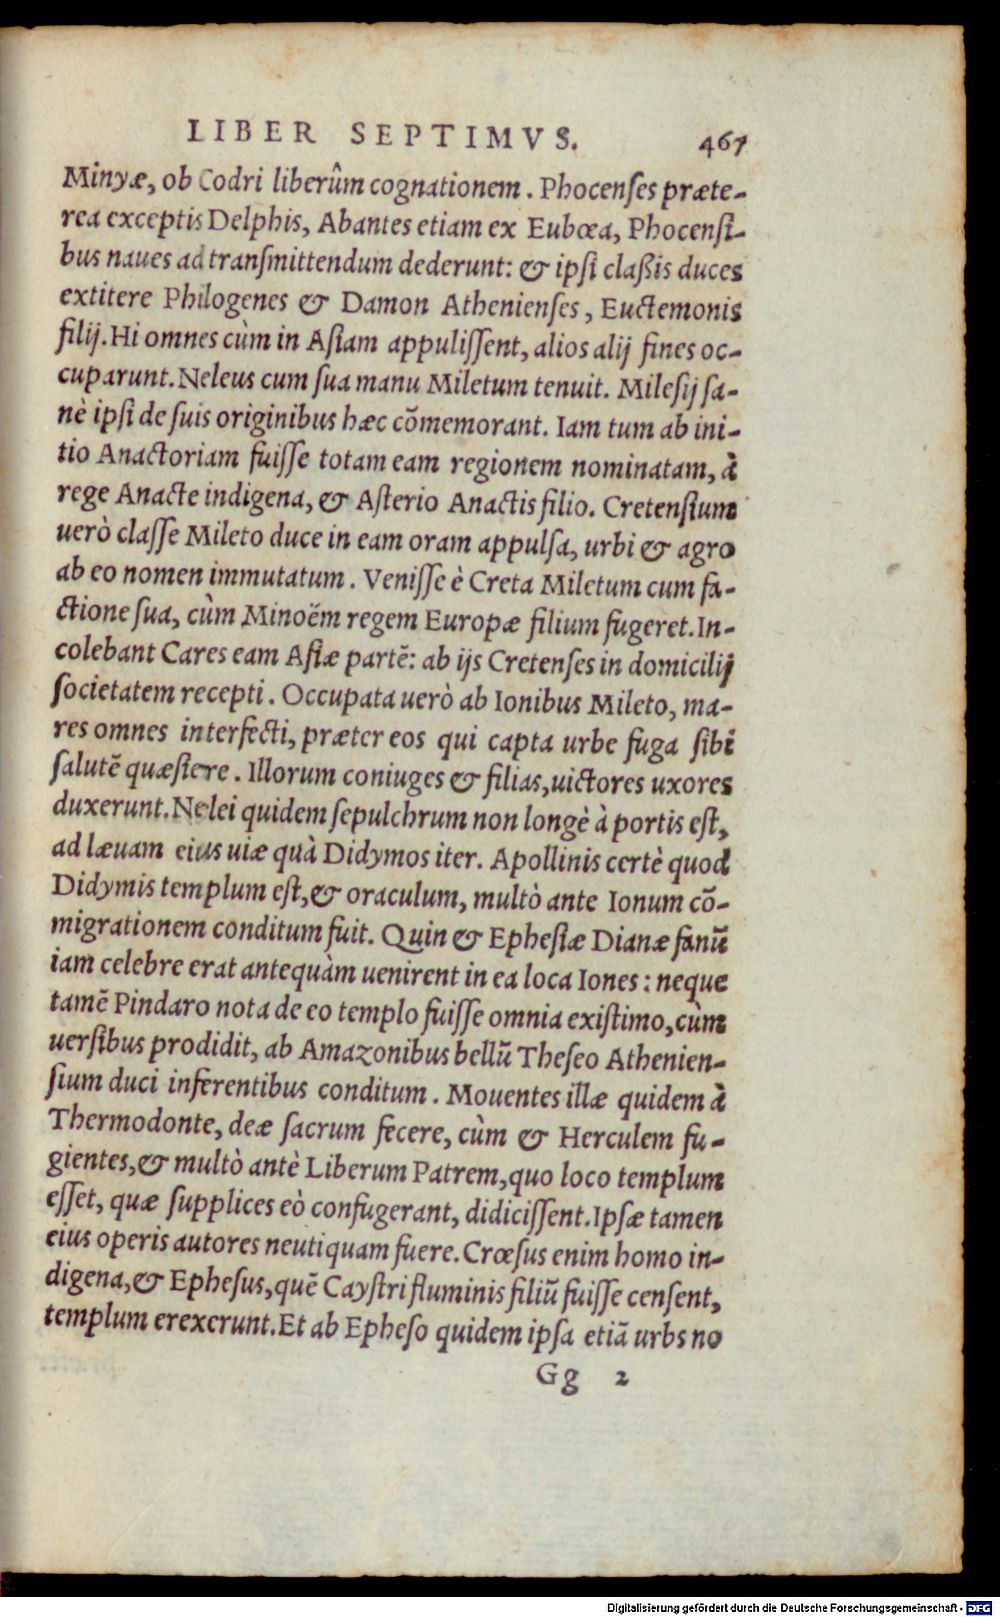 LIBER SEPTIMVS. 467
Minyæ, ob Codri liberûm cognationem. Phocenses præte-
rea exceptis Delphis, Abantes etiam ex Eubœa, Phocensi-
bus naues ad transmittendum dederunt: & ipsi claßis duces
extitere Philogenes & Damon Athenienses, Euctemonis
filij. Hi omnes cùm in Asiam appulissent, alios alij fines oc-
cuparunt. Neleus cum sua manu Miletum tenuit. Milesij sa-
nè ipsi de suis originibus hæc cõmemorant. Iam tum ab ini-
tio Anactoriam fuisse totam eam regionem nominatam, à
rege Anacte indigena, & Asterio Anactis filio. Cretensium
uerò classe Mileto duce in eam oram appulsa, urbi & agro
ab eo nomen immutatum. Venisse è Creta Miletum cum fa-
ctione sua, cùm Minoẽm regem Europæ filium fugeret. In-
colebant Cares eam Asiæ partẽ: ab ijs Cretenses in domicilij
societatem recepti. Occupata uerò ab Ionibus Mileto, ma-
res omnes interfecti, præter eos qui capta urbe fuga sibi
salutẽ quæsiere. Illorum coniuges & filias, uictores uxores
duxerunt. Nelei quidem sepulchrum non longè à portis est,
ad læuam eius uiæ quà Didymos iter. Apollinis certè quod
Didymis templum est, & oraculum, multò ante Ionum cõ-
migrationem conditum fuit. Quin & Ephesiæ Dianæ fanũ
iam celebre erat antequàm uenirent in ea loca Iones: neque
tamẽ Pindaro nota de eo templo fuisse omnia existimo, cùm
uersibus prodidit, ab Amazonibus bellũ Theseo Athenien-
sium duci inferentibus conditum. Mouentes illæ quidem à
Thermodonte, deæ sacrum fecere, cùm & Herculem fu-
gientes, & multò antè Liberum Patrem, quo loco templum
esset, quæ supplices eò confugerant, didicissent. Ipsæ tamen
eius operis autores neutiquam fuere. Crœsus enim homo in-
digena, & Ephesus, quẽ Caystri fluminis filiũ fuisse censent,
templum erexerunt. Et ab Epheso quidem ipsa etiã urbs no
Gg 2
Digitalisierung gefördert durch die Deutsche Forschungsgemeinschaft - DFG